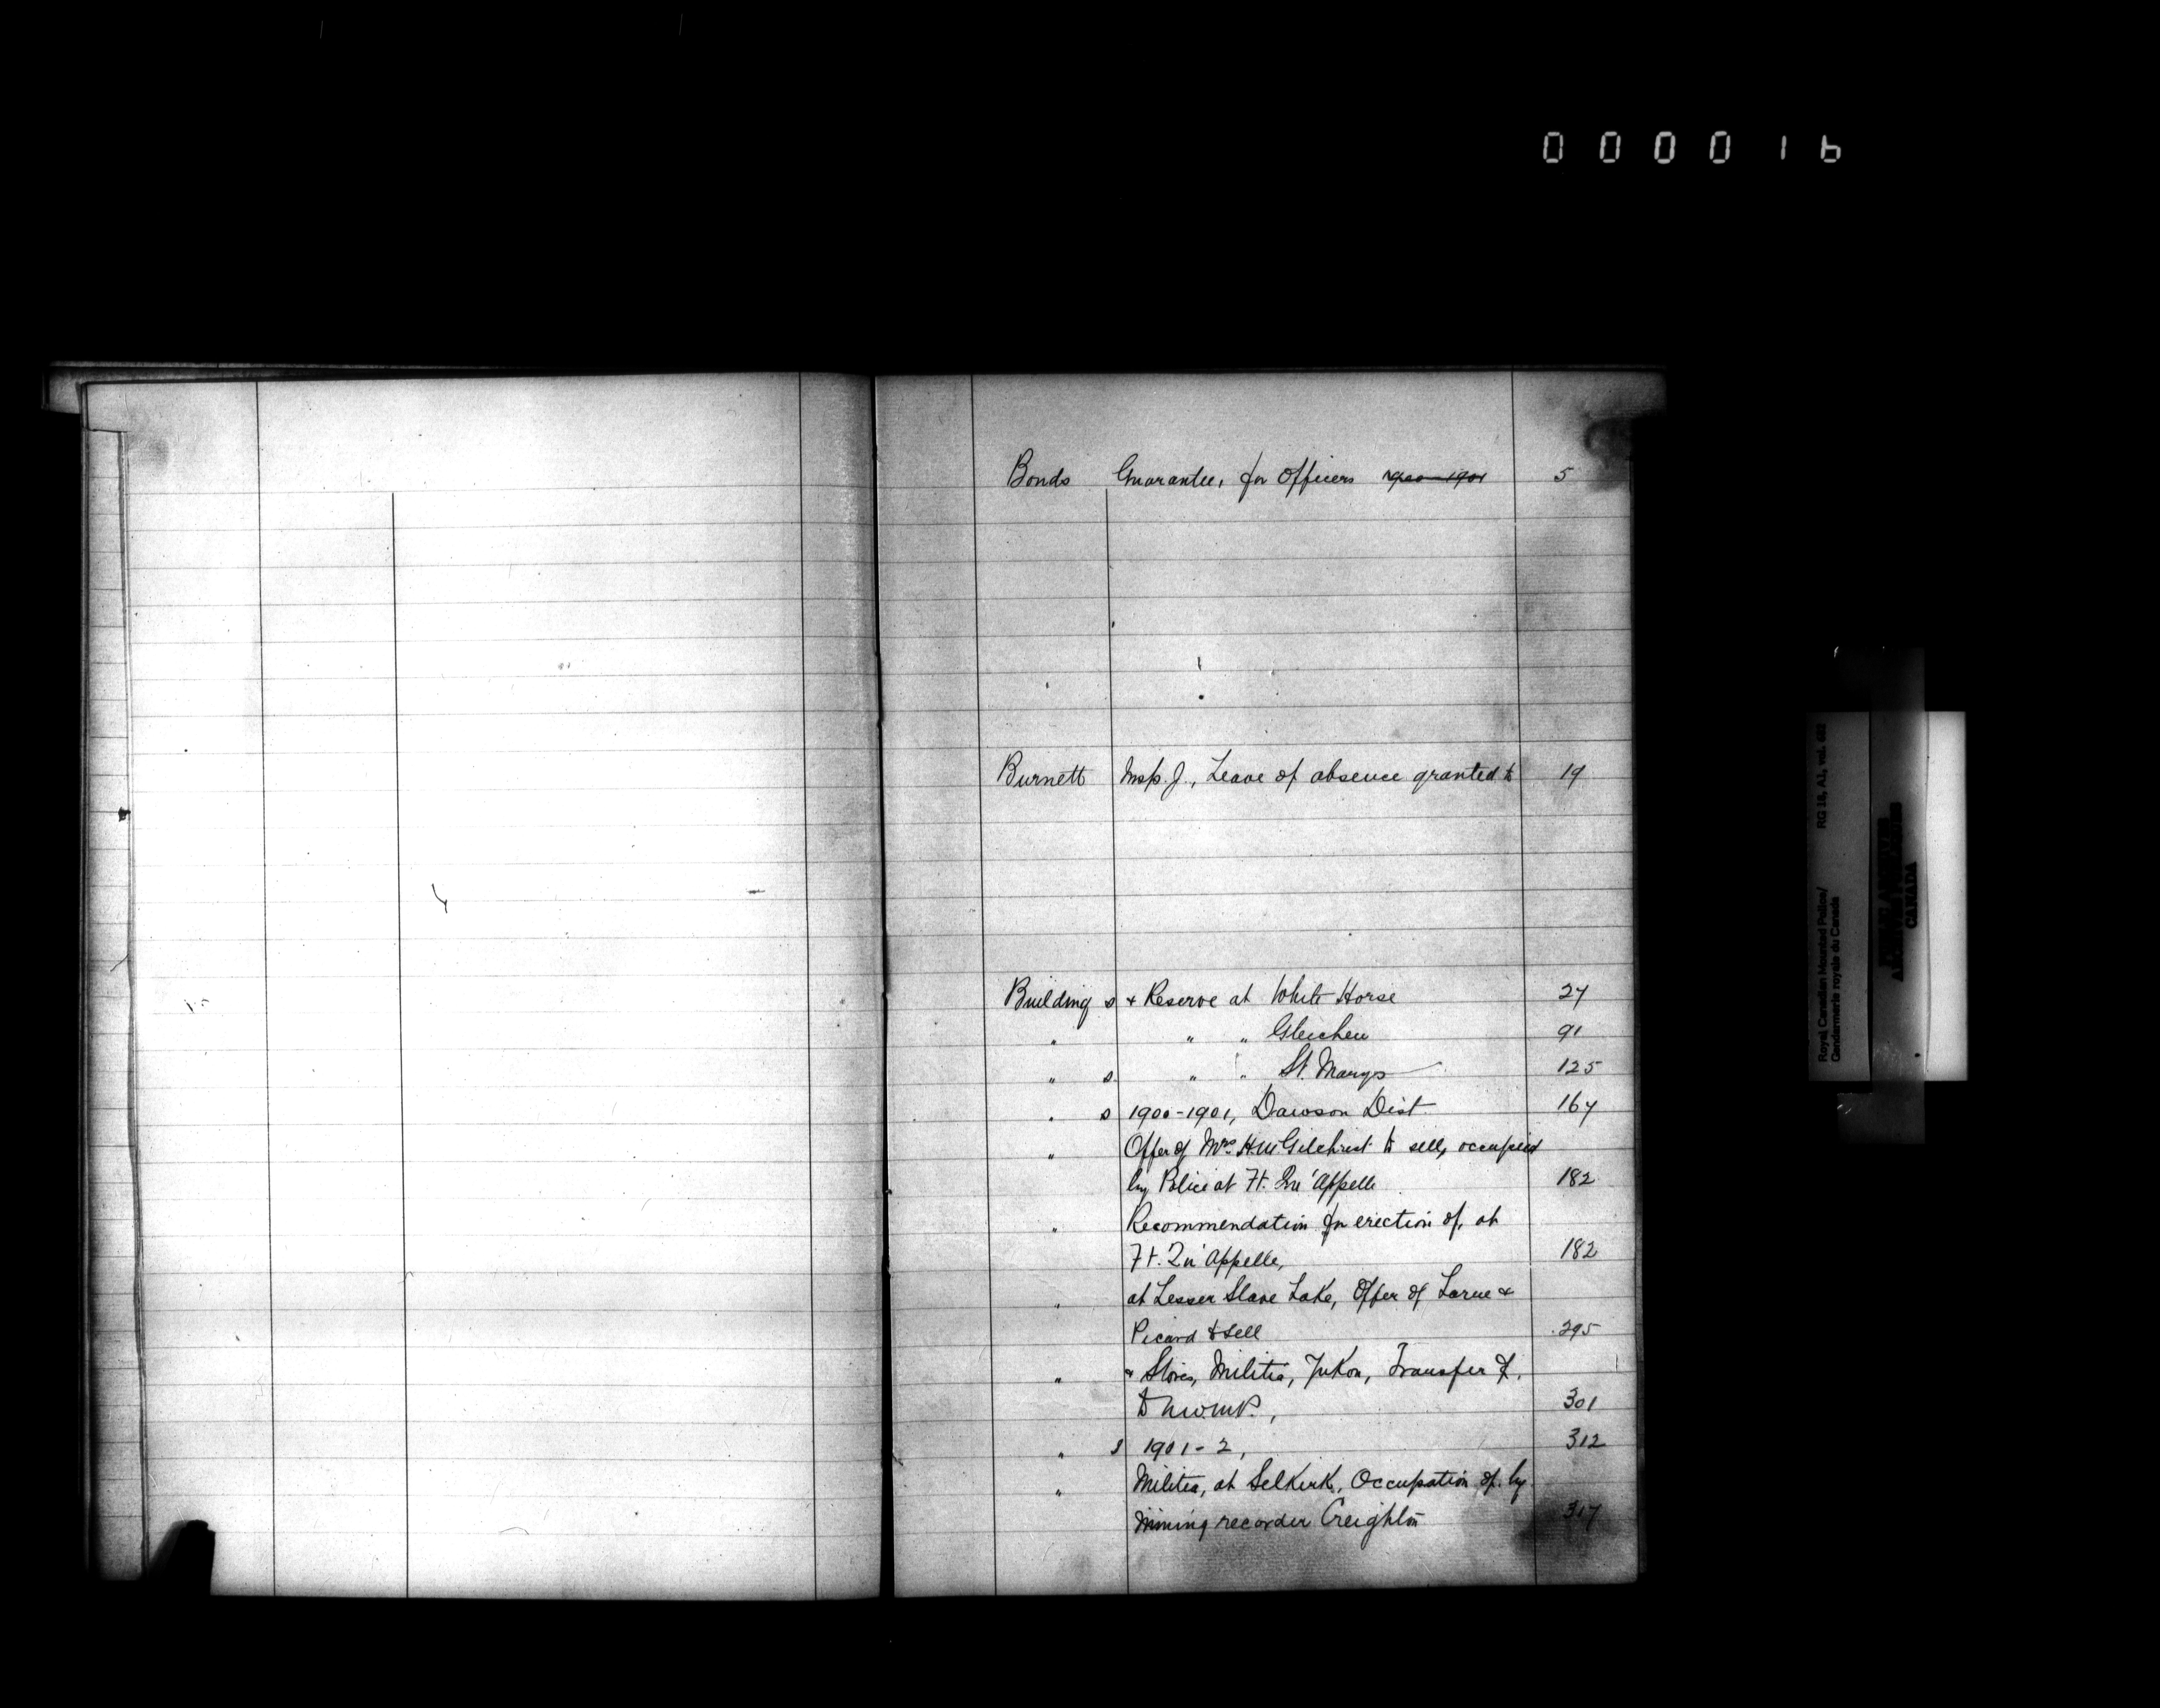 000016
Bonds Guarantee, for Officers 1900-1901 5
Burnett Insp. J., Leave of absence granted to 19
Building s & Reserve at White Horse 27
" " " Gleichen 91
" s " " St. Marys 125
" s 1900-1901, Dawson Dist. 167
" Offer of Mrs. H.M. Gilchrist to sell, occupied
by Police at Ft. Qu'Appelle 182
" Recommendation for erection of, at
Ft. Qu'Appelle, 182
" at Lesser Slave Lake, Offer of Larue &
Picard to sell 295
" & Stores, Militia, Yukon, Transfer of,
to N.W.M.P., 301
" s 1901-2, 312
" Militia, at Selkirk, Occupation of, by
Mining recorder Creighton 317
Royal Canadian Mounted Police/
Gendarmerie royale du Canada
RG 18, A1, vol. 682
PUBLIC ARCHIVES
ARCHIVES PUBLIQUES
CANADA